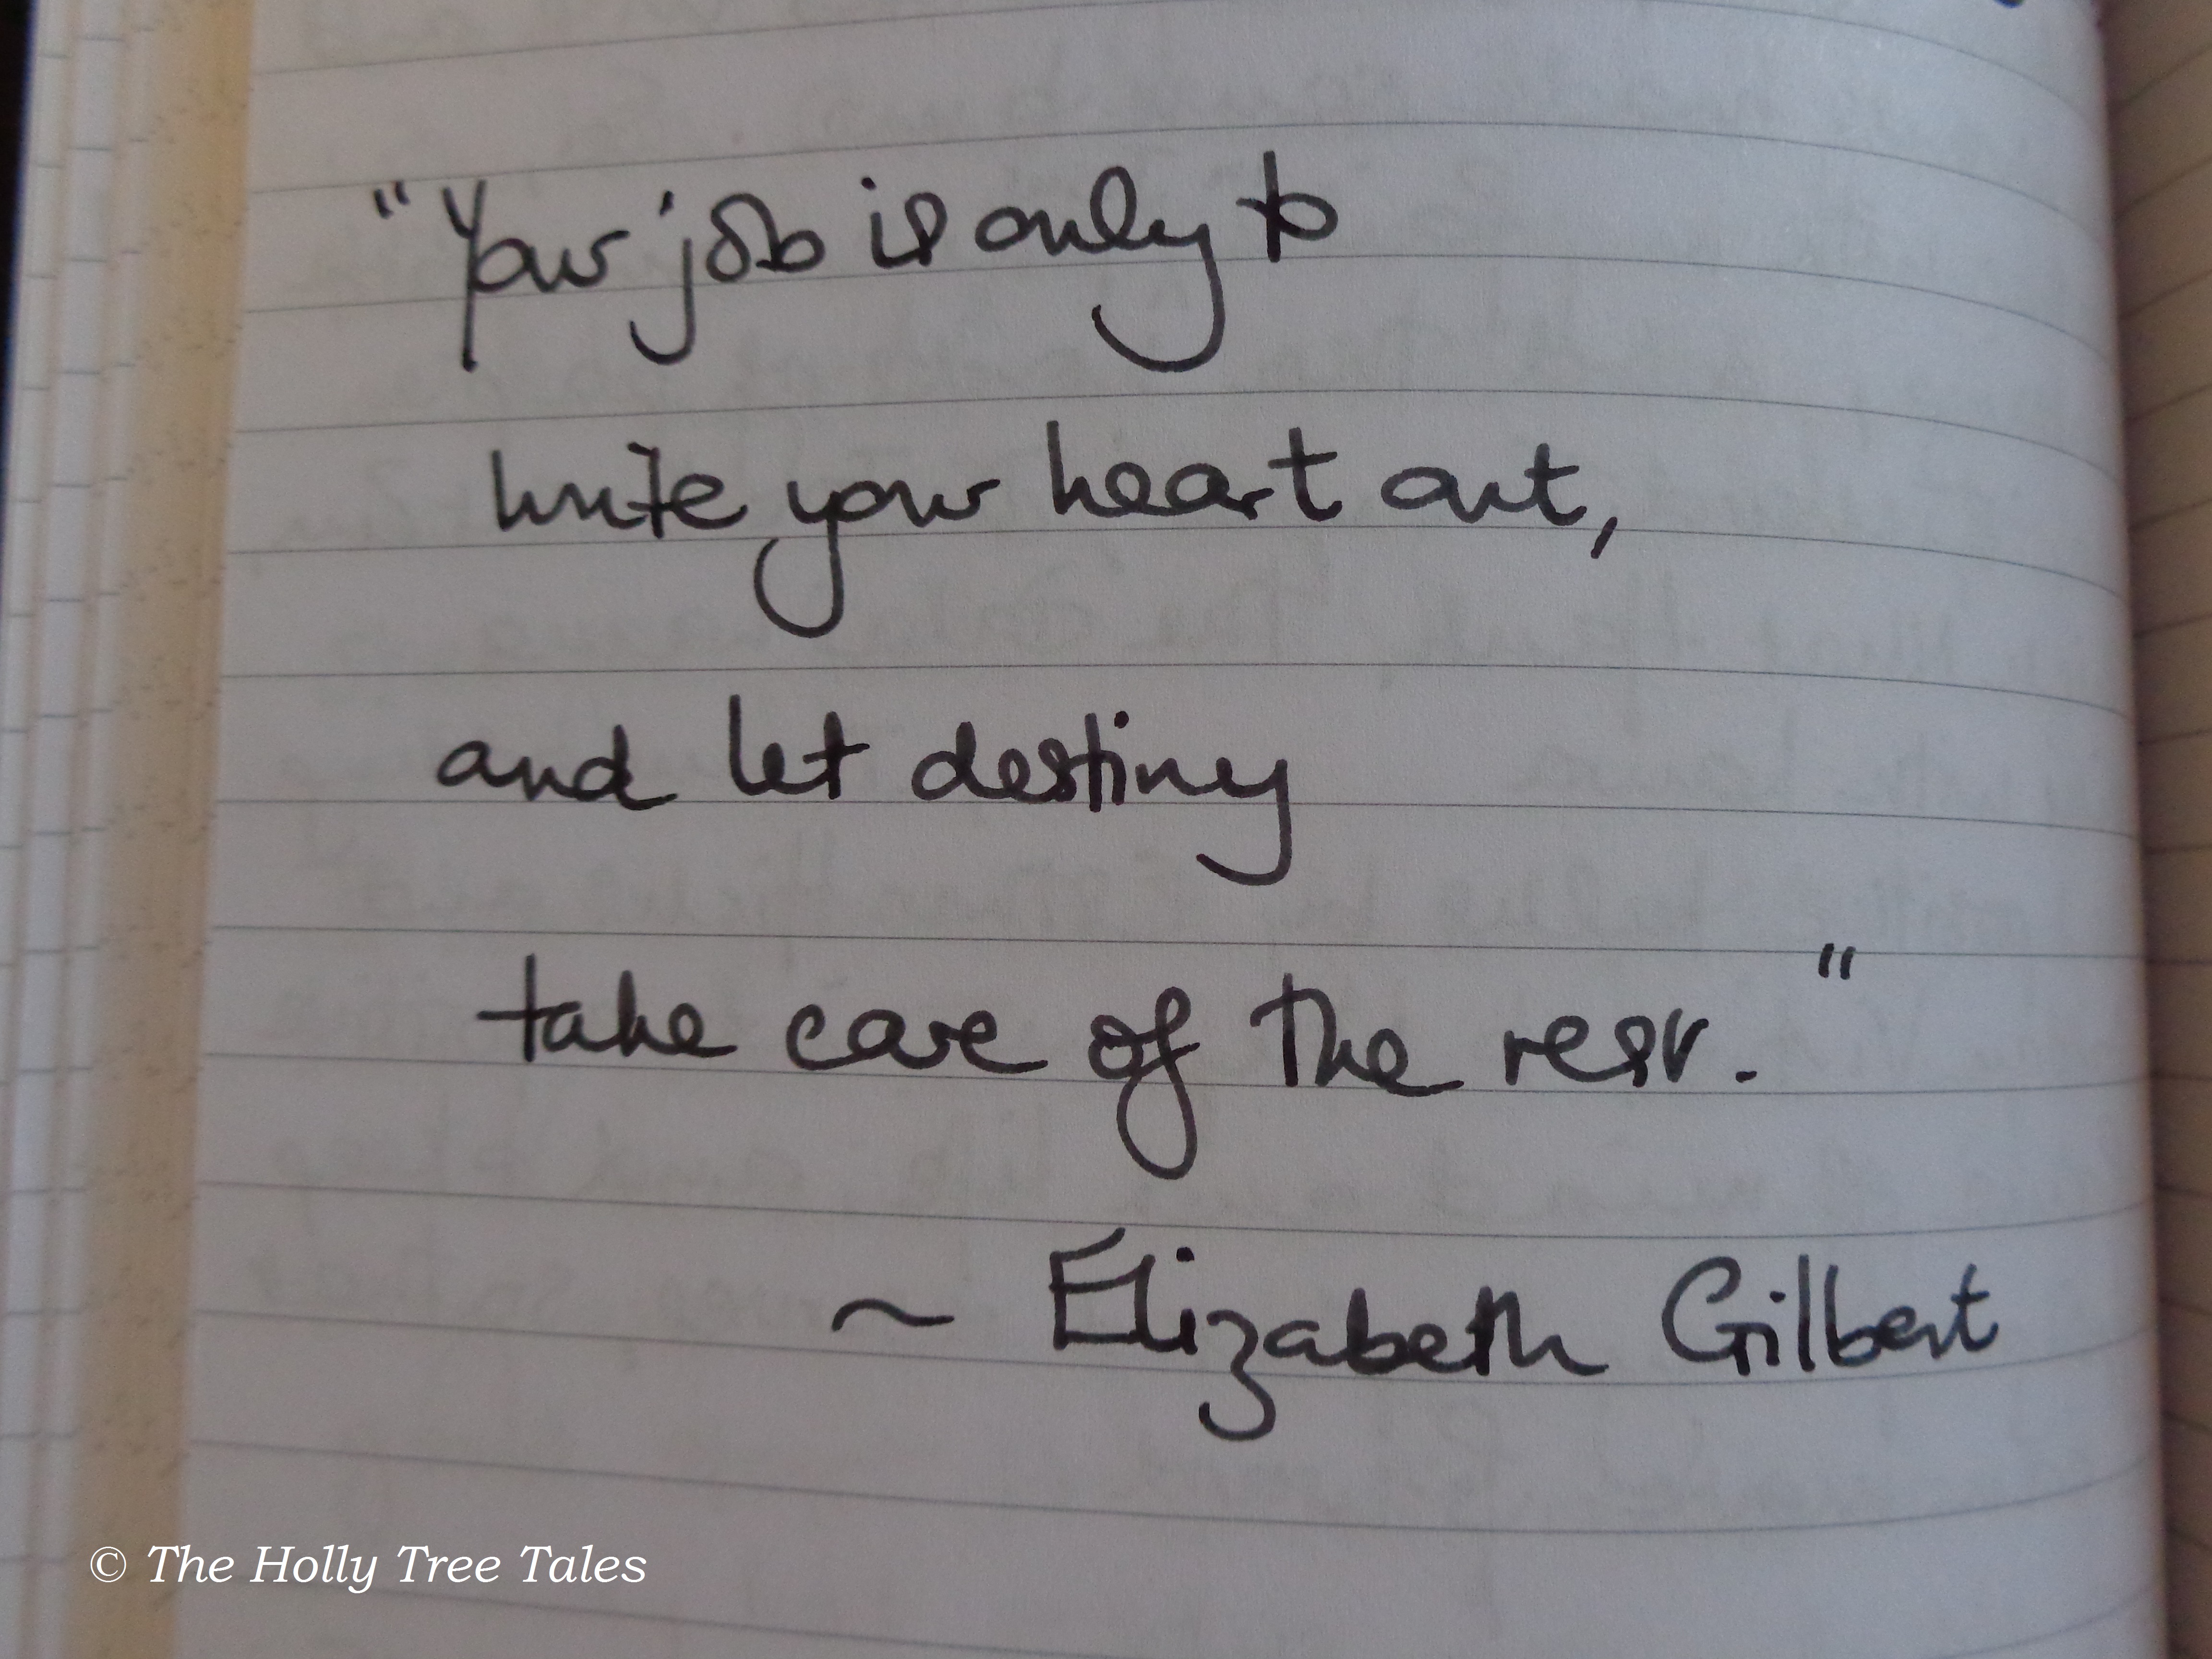 "Your job is only to
write your heart out,
and let destiny
take care of the rest."
~ Elizabeth Gilbert
© The Holly Tree Tales